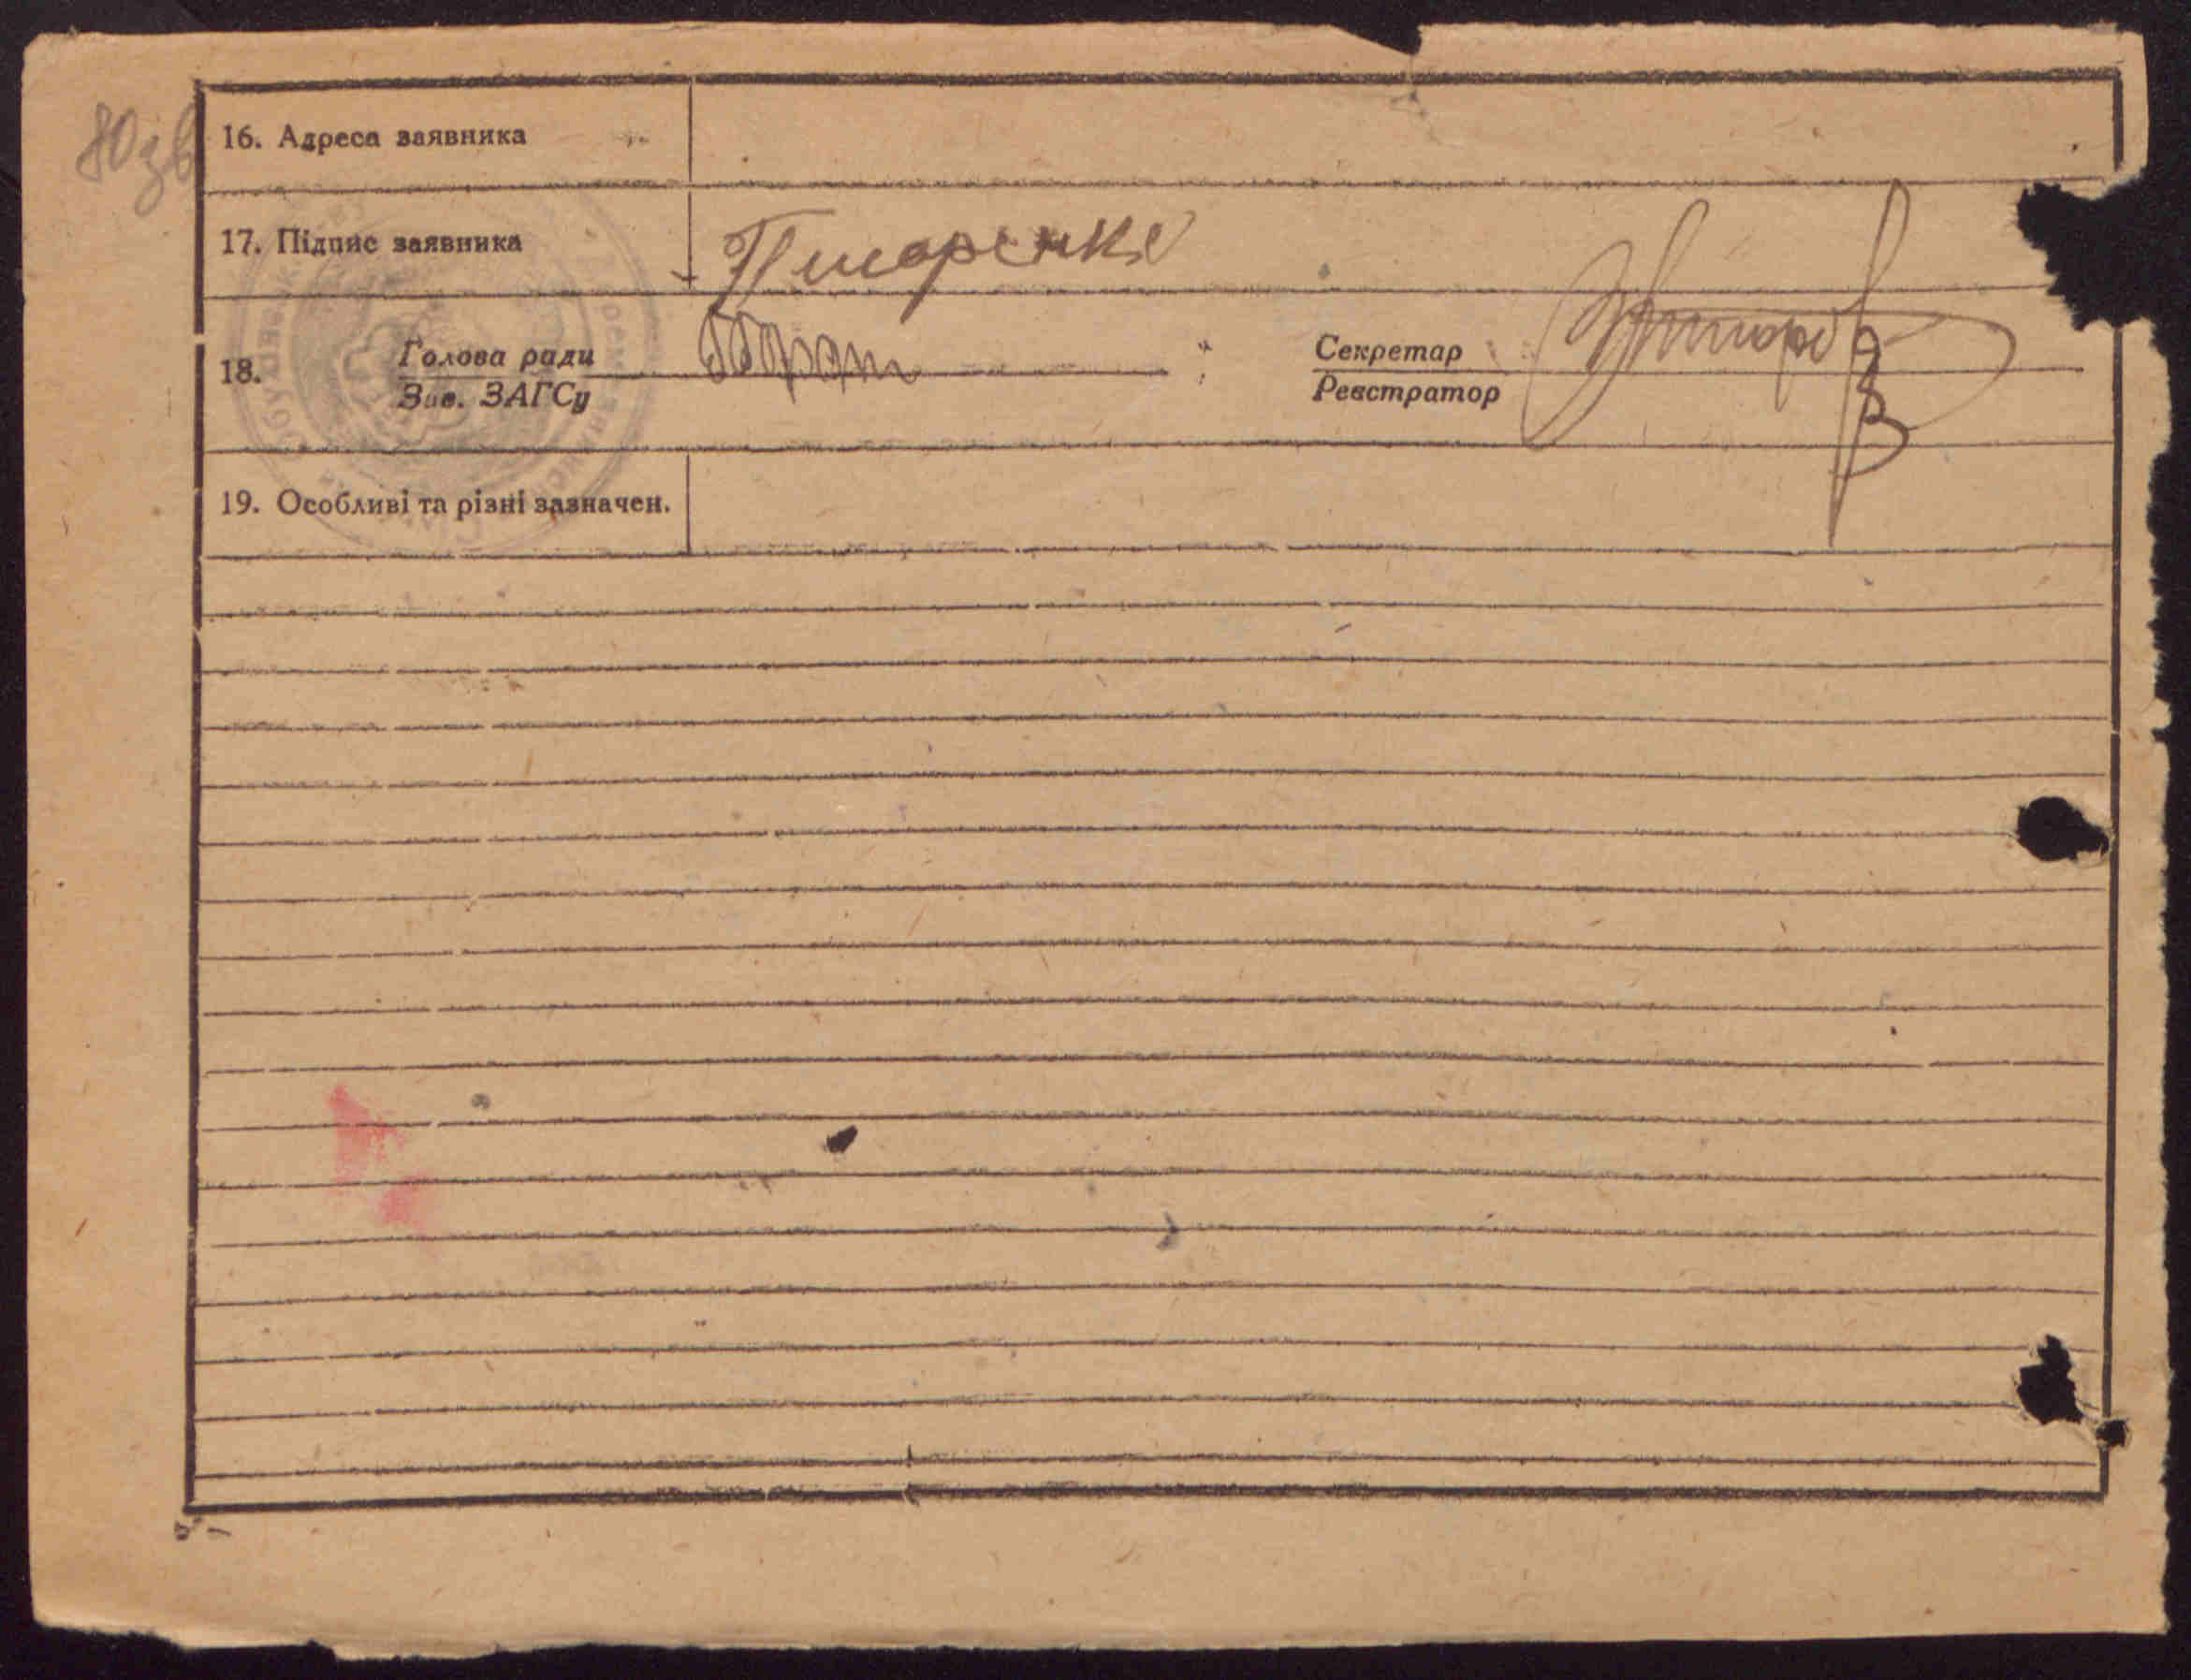 80зв
16. Адреса заявника
17. Підпис заявника Писаренко
18. Голова ради
Зав. ЗАГСу
Секретар
Реєстратор
19. Особливі та різні зазначен.